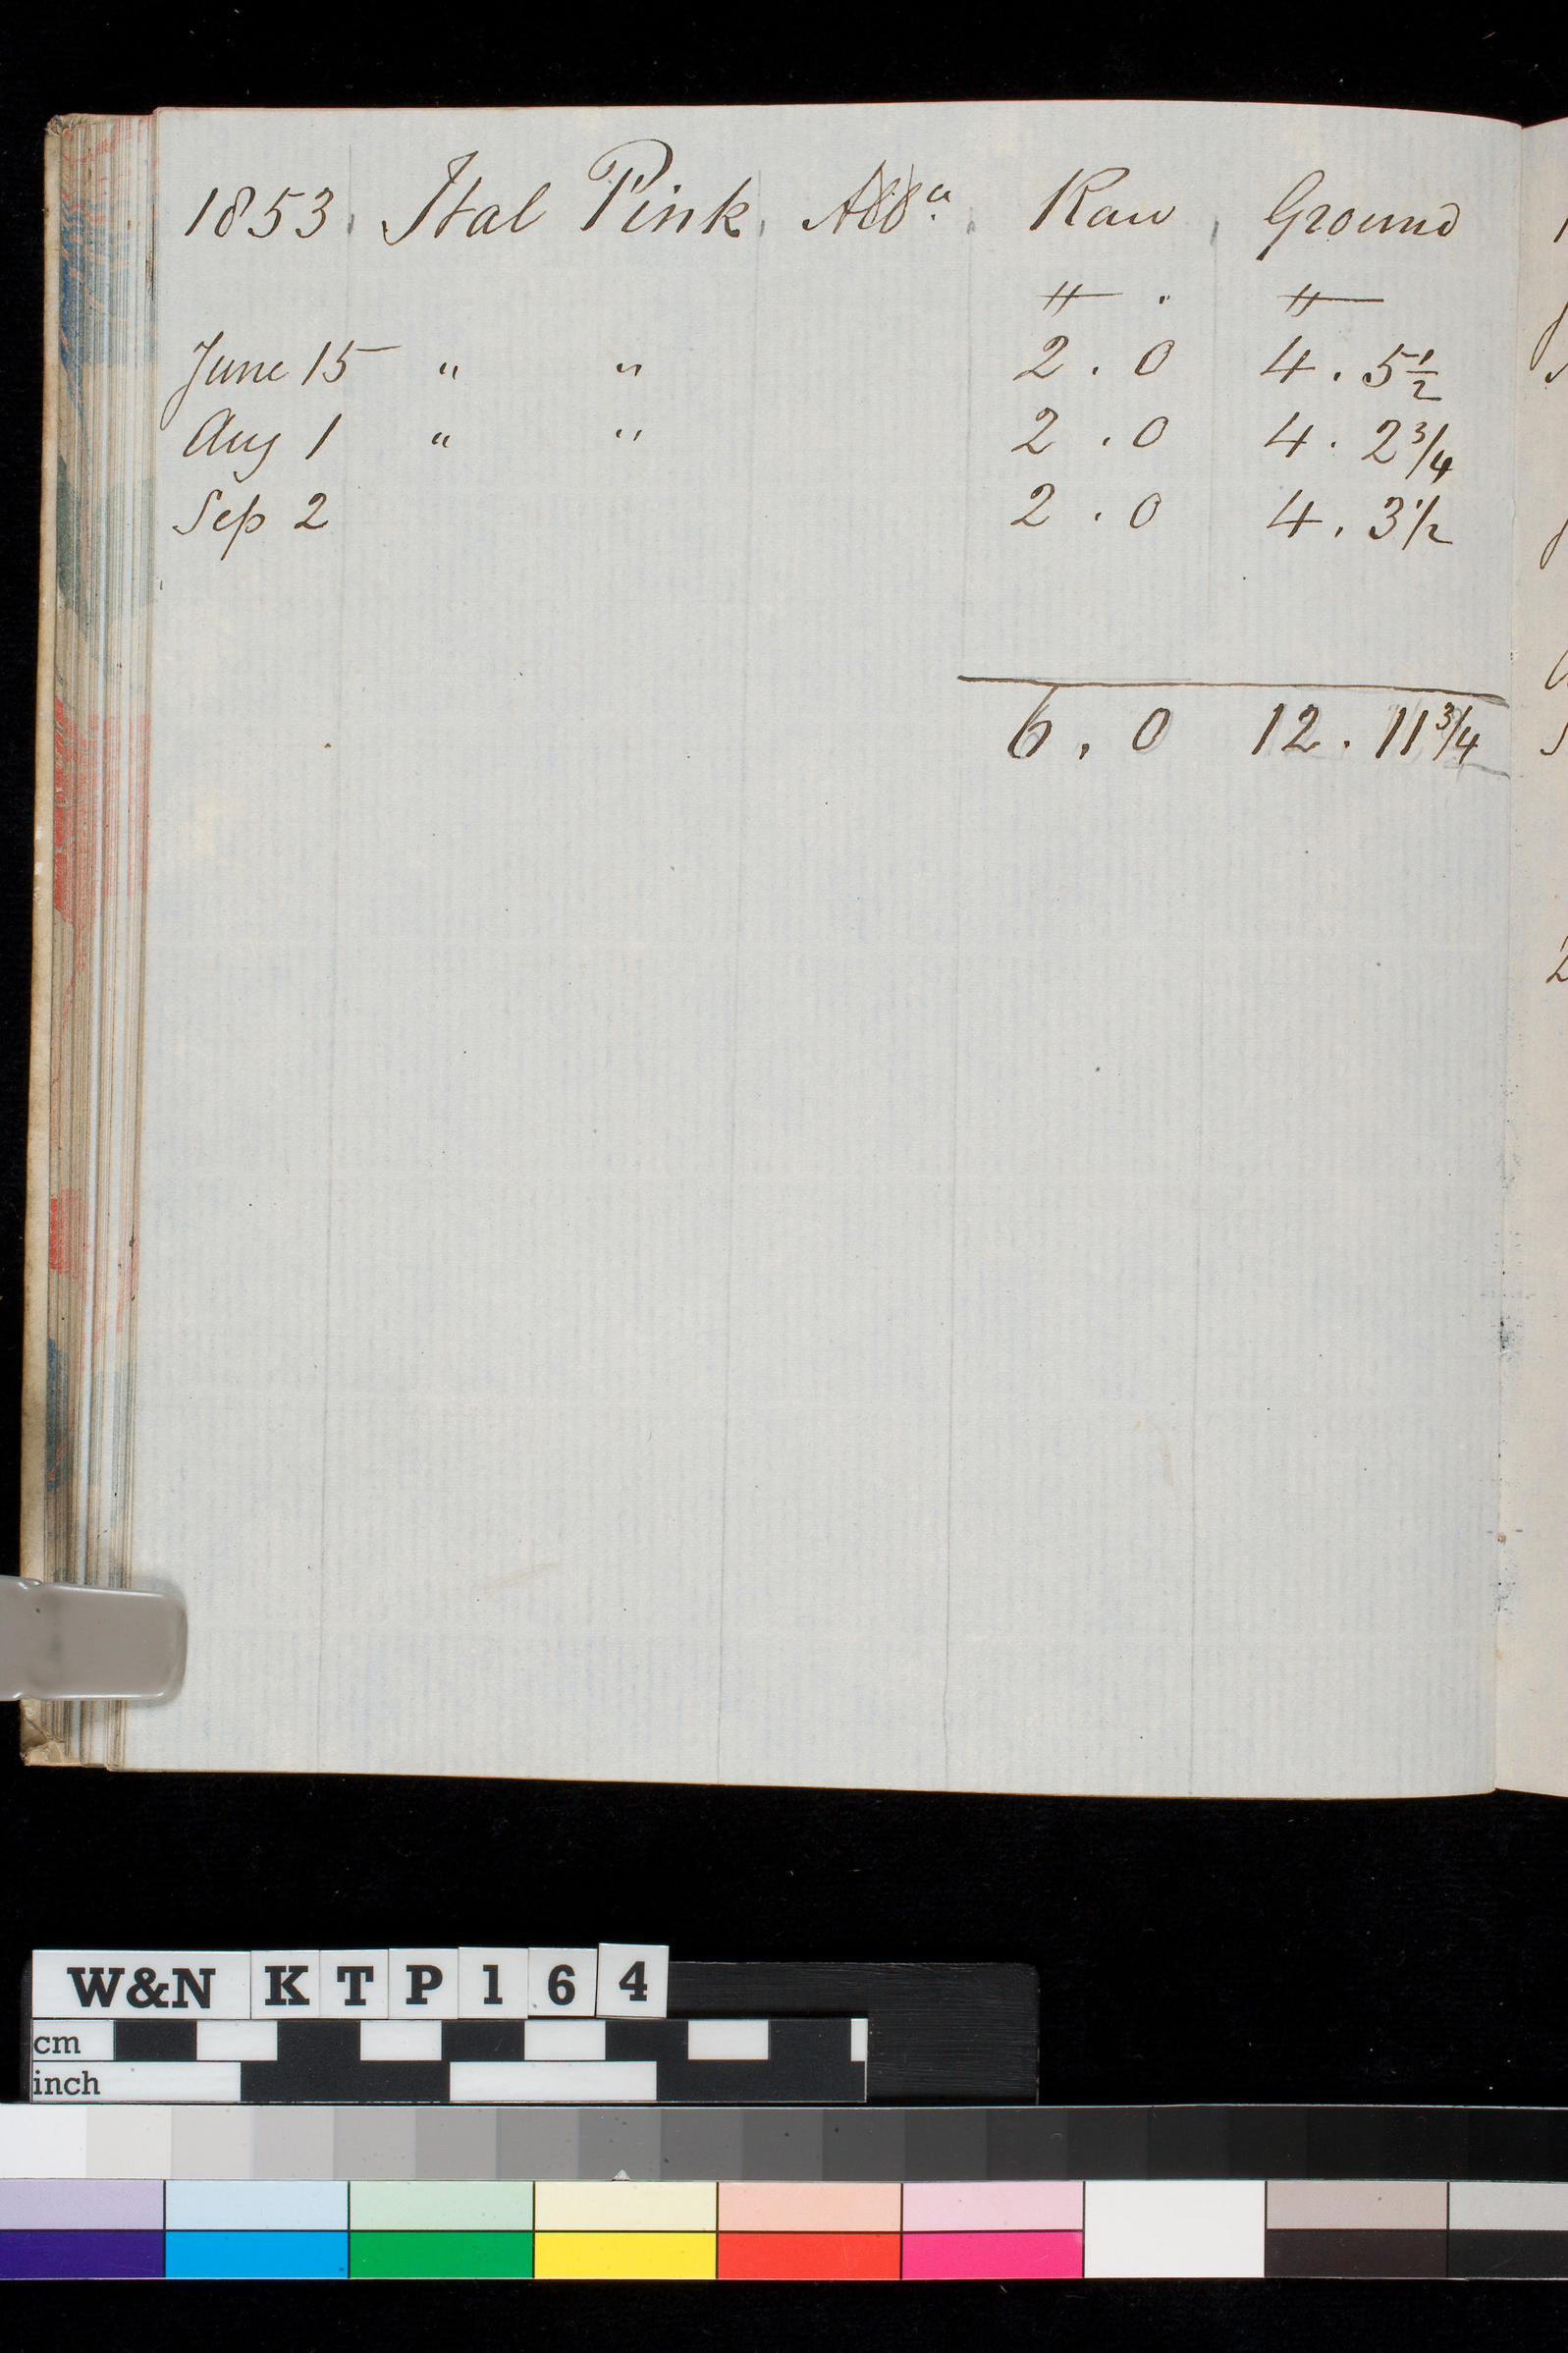 1853 Ital Pink Raw Ground
June 15 " " 2 . 0 4 . 5 1/2
Aug 1 " " 2 . 0 4 . 2 3/4
Sep 2 2 . 0 4 . 3 1/2
6 . 0 12 . 11 3/4
W&N KTP164
cm
inch